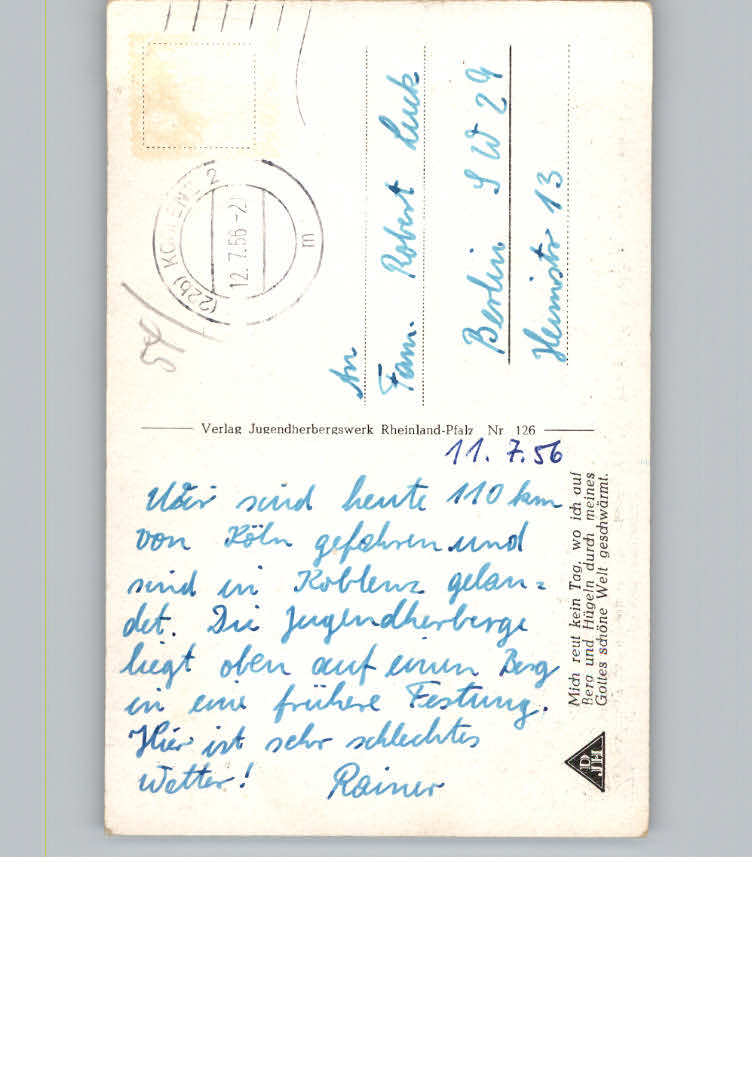 (22b) KOBLENZ 2
12.7.56-21
m
54
An
Fam. Robert Luck
Berlin SW 29
Heimstr 13
Verlag Jugendherbergswerk Rheinland-Pfalz Nr 126
11. 7. 56
Wir sind heute 110 km
von Köln gefahren und
sind in Koblenz gelan=
det. Die Jugendherberge
liegt oben auf einen Berg
in eine frühere Festung.
Hier ist sehr schlechtes
Wetter! Rainer
Mich reut kein Tag, wo ich auf
Berg und Hügeln durch meines
Gottes schöne Welt geschwärmt.
DJH